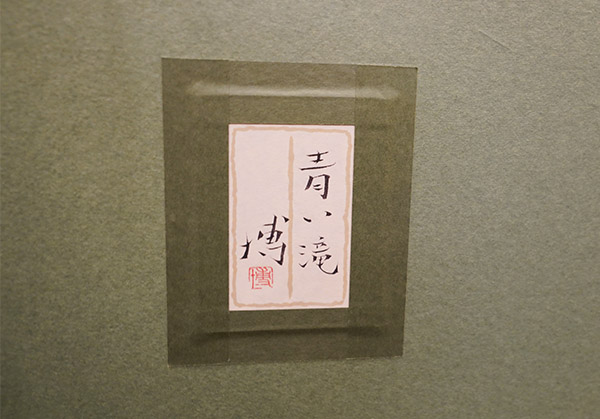 青い滝
博
博